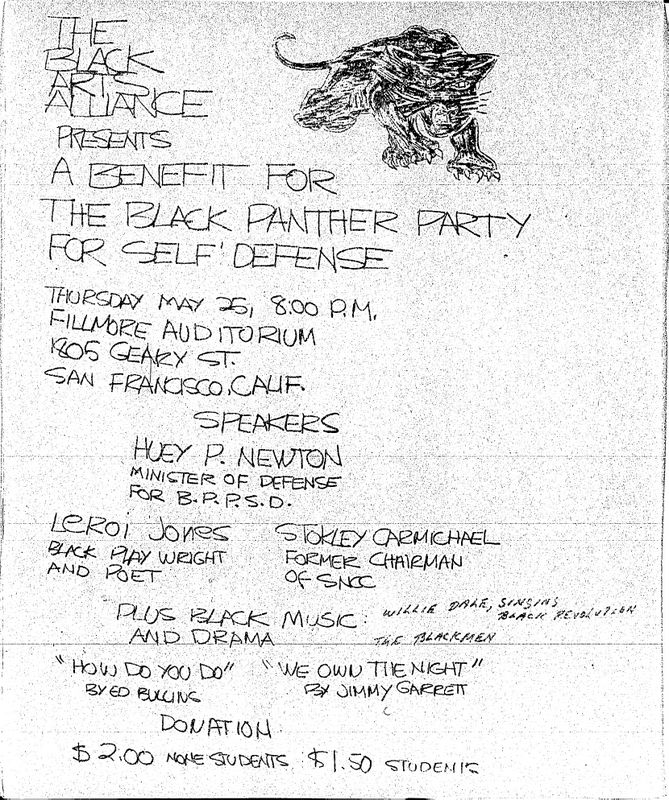 THE
BLACK
ARTS
ALLIANCE
PRESENTS
A BENEFIT FOR
THE BLACK PANTHER PARTY
FOR SELF'DEFENSE
THURSDAY MAY 25, 8:00 P.M.
FILLMORE AUDITORIUM
1805 GEARY ST.
SAN FRANCISCO, CALIF.
SPEAKERS
HUEY P. NEWTON
MINISTER OF DEFENSE
FOR B.P.P.S.D.
LeROI JONES
BLACK PLAY WRIGHT
AND POET
STOKLEY CARMICHAEL
FORMER CHAIRMAN
OF SNCC
PLUS BLACK MUSIC:
AND DRAMA
WILLIE DALE, SINGING
BLACK REVOLUTION
THE BLACKMEN
"HOW DO YOU DO"
BY ED BULLINS
"WE OWN THE NIGHT"
BY JIMMY GARRETT
DONATION
$2.00 NONE STUDENTS $1.50 STUDENTS